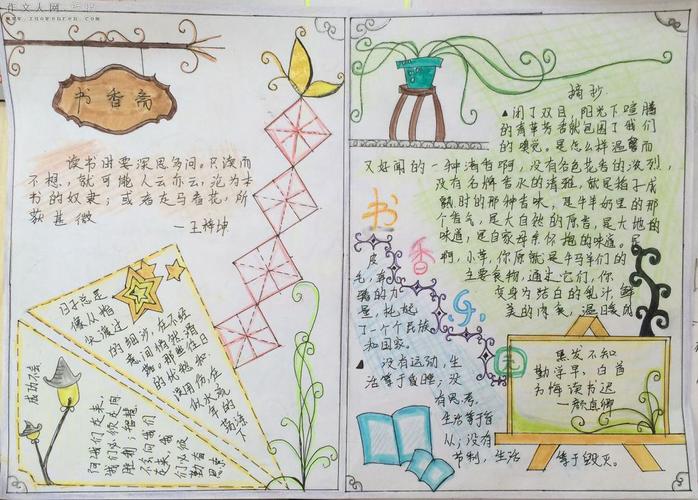 作文人网
www.zuowenren.net
书香斋
读书时要深思多问。只读而
不想，就可能人云亦云，沦为本
书的奴隶；或者走马看花，所
获甚微
—王梓坤
日子总是
像从指
尖流过
的细沙，在不经
意间悄然滑
落。那些往日
的忧愁和
误用伤，在
似水流
年的
荡涤下
成功不会
向我们走来，
我们必须走向
胜利；智慧
不会向我们
走来，我
们必须
勤苦
思索
摘抄
▲闭了双目，阳光下喧腾
的青草芳香就包围了我们
的嗅觉。是怎么样温馨而
又好闻的一种清香啊，没有各色花香的浓烈，
没有名牌香水的清雅，就是稻子成
熟时的那种香味，是牛羊奶里的那
个香气，是大自然的原香，是大地的
味道，是自家母亲你抱的味道。是
啊，小草，你原就是牛马羊们的
主要食物，通过它们，你
变身为洁白的乳汁，鲜
美的肉类，温暖的
皮
毛，奔
腾的力
量，托起
了一个个民族
和国家。
没有运动，生
活等于昏睡；没
有思考，
生活等于盲
从；没有
节制，生活
等于毁灭。
书
香
乐
园
黑发不知
勤学早，白首
方悔读书迟
—颜真卿